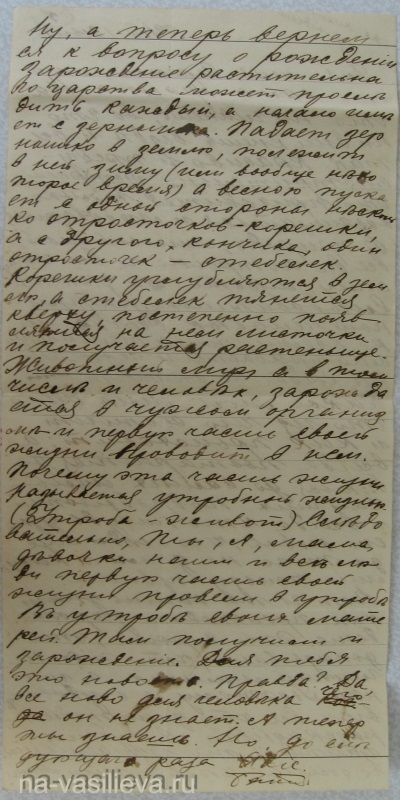 Ну, а теперь вернем
ся к вопросу о рожденiи
Зарожденiе растительна
го царства может прослѣ
дить каждый, а начало идет
с зернышка. Падает зер
нышко в землю, полежит
в ней зиму (или вообще нѣко
торое время) а весною пуска
ет с одной стороны нѣсколь
ко отросточков-корешки,
а с другого, кончика, один
отросточек – стебелек.
Корешки углубляются в зем
лю, а стебелек тянется
кверху постепенно появ
ляются на нем листочки
и получается растеньице.
Животный мiр, а в том
числѣ и человѣк, зарожда
ется в чужом организ
мѣ и первую часть своей
жизни проводит в нем.
Почему эта часть жизни
называется утробной жизнью
(Утроба – живот) Слѣдо
вательно, ты, я, мама,
дѣвочки наши и всѣ лю
ди первую часть своей
жизни провели в утробѣ
Въ утробѣ своих мате
рей. Там получили и
зарожденiе. Для тебя
это новость. Правда? Да,
все ново для человѣка
он не знает. А теперь
ты знаешь. Но, до слѣ
дующаго раза
na-vasilieva.ru